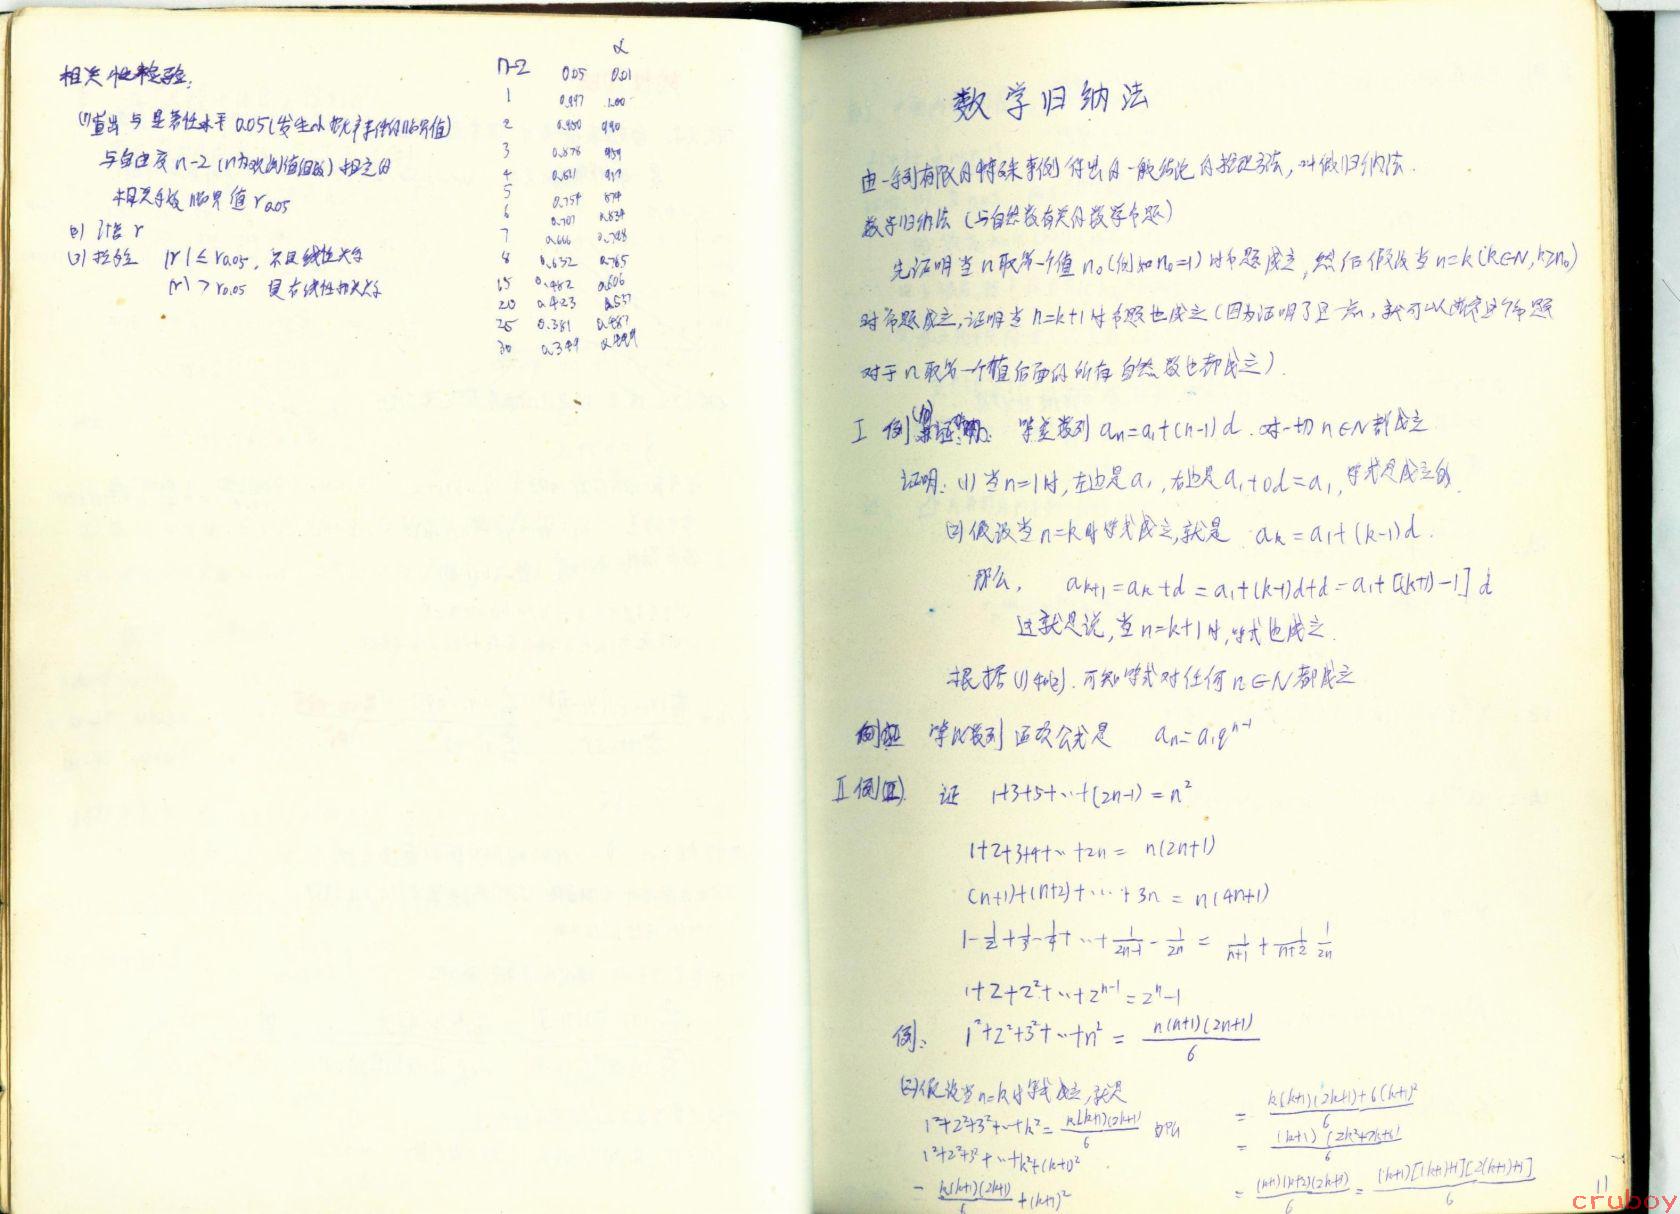 相关性检验:
(1)查出与显著性水平0.05(发生小概率事件的临界值)
与自由度n-2(n为观测值组数)相应的
相关系数临界值r0.05
(2)计算r
(3)检验 |r|≤r0.05,不具线性关系
|r|>r0.05 具有线性相关关系
α
n-2 0.05 0.01
1 0.997 1.00
2 0.950 990
3 0.878 959
4 0.811 917
5 0.754 874
6 0.707 0.834
7 0.666 0.798
8 0.632 0.765
15 0.482 0.606
20 0.423 0.537
25 0.381 0.487
30 0.349 0.449
数学归纳法
由一系列有限的特殊事例得出的一般结论的推理方法,叫做归纳法.
数学归纳法(与自然数有关的数学命题)
先证明当n取第一个值n0(例如n0=1)时命题成立,然后假设当n=k(k∈N,k≥n0)
时命题成立,证明当n=k+1时命题也成立(因为证明了这一点,就可以断定这个命题
对于n取第一个值后面的所有自然数也都成立).
I 例 证明: 等差数列 an=a1+(n-1)d.对一切n∈N都成立
证明:(1)当n=1时,左边是a1,右边是a1+0d=a1,等式是成立的.
(2)假设当n=k时等式成立,就是 ak=a1+(k-1)d.
那么, ak+1=ak+d=a1+(k-1)d+d=a1+[(k+1)-1]d
这就是说,当n=k+1时,等式也成立.
根据(1)和(2).可知等式对任何n∈N都成立
例证 等比数列通项公式是 an=a1q^n-1
II 例(II) 证 1+3+5+…+(2n-1)=n²
1+2+3+4+…+2n= n(2n+1)
(n+1)+(n+2)+…+3n = n(4n+1)
1-1/2+1/3-1/4+…+1/2n-1 - 1/2n = 1/n+1 + 1/n+2 1/2n
1+2+2²+…+2^n-1=2^n-1
例: 1²+2²+3²+…+n² = n(n+1)(2n+1)/6
(2)假设当n=k时等式成立,就是
1²+2²+3²+…+k²=k(k+1)(2k+1)/6 那么
1²+2²+3²+…+k²+(k+1)²
= k(k+1)(2k+1)/6 +(k+1)²
= k(k+1)(2k+1)+6(k+1)²/6
= (k+1)(2k²+7k+6)/6
= (k+1)(k+2)(2k+3)/6 = (k+1)[(k+1)+1][2(k+1)+1]/6
11
cruboy